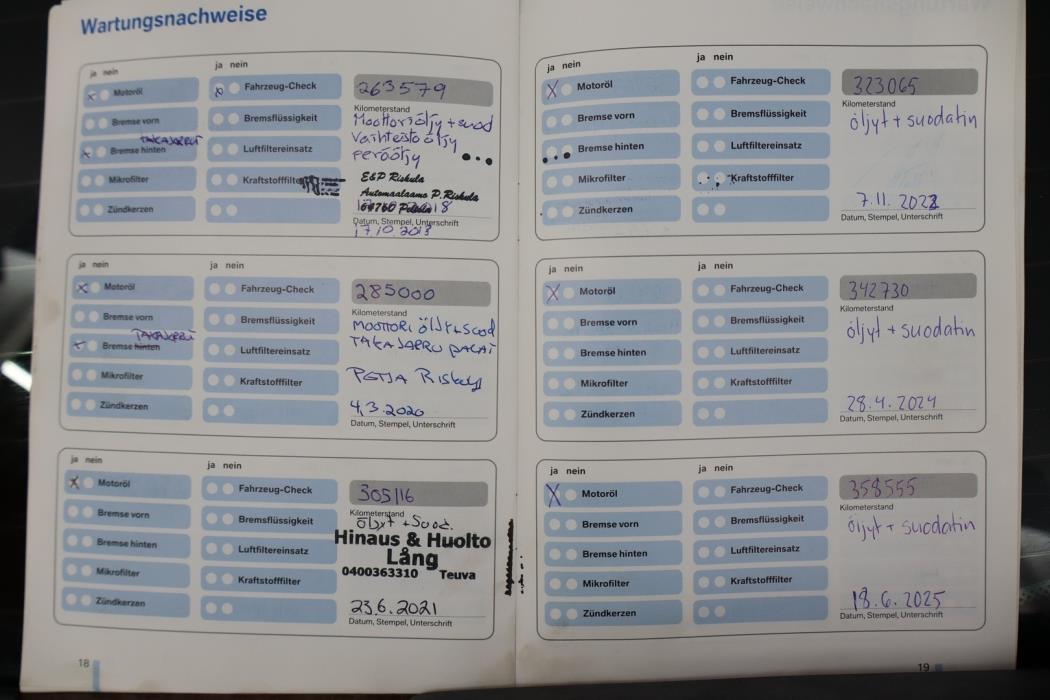 Wartungsnachweise
ja nein
ja nein
Motoröl
Fahrzeug-Check
263579
Kilometerstand
Bremse vorn
Bremsflüssigkeit
Moottoriöljy + suod
Vaihteisto öljy
TAKAJARRU
Bremse hinten
Luftfiltereinsatz
Peräöljy
Mikrofilter
Kraftstofffilter
E&P Riskula
Automaalaamo P. Riskula
64760 Peltola
Zündkerzen
Datum, Stempel, Unterschrift
17.10.2018
ja nein
ja nein
Motoröl
Fahrzeug-Check
285000
Kilometerstand
Bremse vorn
Bremsflüssigkeit
MOOTTORI ÖLJYT+SUOD
TAKAJARRU
Bremse hinten
Luftfiltereinsatz
TAKAJARRU PALAT
Mikrofilter
Kraftstofffilter
Zündkerzen
4.3.2020
Datum, Stempel, Unterschrift
ja nein
ja nein
Motoröl
Fahrzeug-Check
305116
Kilometerstand
öljyt + Suod.
Bremse vorn
Bremsflüssigkeit
Hinaus & Huolto
Lång
0400363310 Teuva
Bremse hinten
Luftfiltereinsatz
Mikrofilter
Kraftstofffilter
Zündkerzen
23.6.2021
Datum, Stempel, Unterschrift
18
ja nein
ja nein
Motoröl
Fahrzeug-Check
323065
Kilometerstand
Bremse vorn
Bremsflüssigkeit
öljyt + suodatin
Bremse hinten
Luftfiltereinsatz
Mikrofilter
Kraftstofffilter
Zündkerzen
7.11.2022
Datum, Stempel, Unterschrift
ja nein
ja nein
Motoröl
Fahrzeug-Check
342730
Kilometerstand
Bremse vorn
Bremsflüssigkeit
öljyt + suodatin
Bremse hinten
Luftfiltereinsatz
Mikrofilter
Kraftstofffilter
Zündkerzen
28.4.2024
Datum, Stempel, Unterschrift
ja nein
ja nein
Motoröl
Fahrzeug-Check
358555
Kilometerstand
Bremse vorn
Bremsflüssigkeit
öljyt + suodatin
Bremse hinten
Luftfiltereinsatz
Mikrofilter
Kraftstofffilter
Zündkerzen
18.6.2025
Datum, Stempel, Unterschrift
19